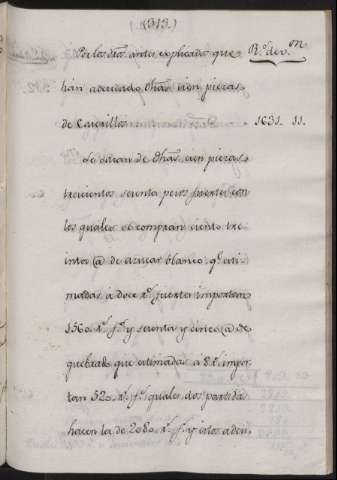 (1313.)
Por los dros. antes explicados que R.s de v.on
han adeudado dhas. cien piezas
de Caserillos 1631. 11.
Se daran de dhas. cien piezas
trecientos setenta pesos fuertes con
los quales se compran ciento tre
inta @ de azucar blanco q.e esti
madas á doce r.s fuertes importan
1560. r.s f.s y sesenta y cinco @ de
quebrado que estimadas a 8 r.s impor
tan 520. r.s f.s quales dos partidas
hacen la de 2080. r.s f.s y estos a den